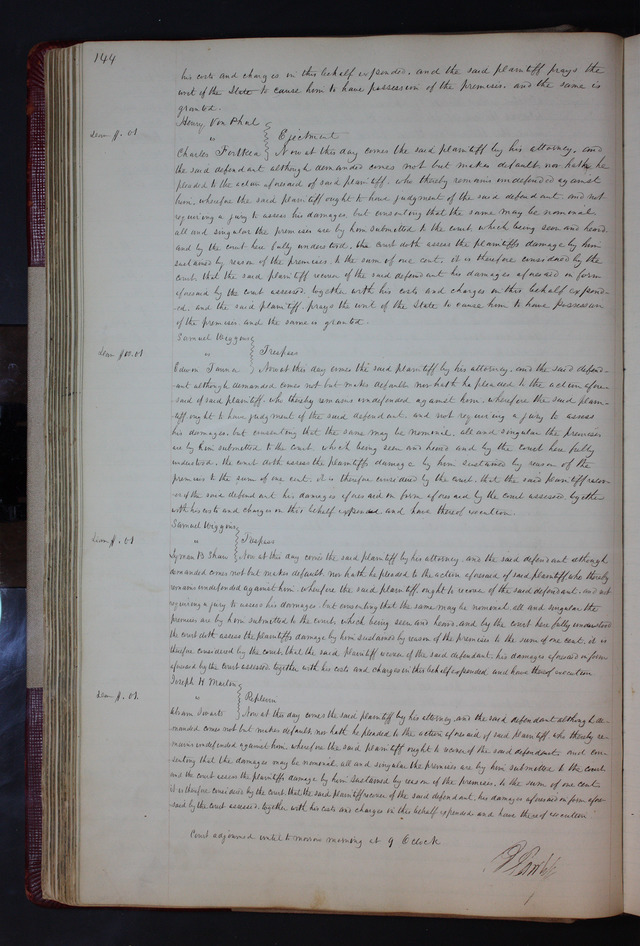 144
his costs and charges in this behalf expended, and the said plaintiff prays the
writ of the State to cause him to have possession of the premises. and the same is
granted.
Henry Von Phul
"
Ejectment
Charles
Now at this day comes the said plaintiff by his attorney, and
the said defendant although demanded comes not but makes default nor hath he
pleaded to the action aforesaid of said plaintiff. who thereby remains undefended against
him. wherefore the said plaintiff ought to have judgment of the said defendant. and not
requiring a jury to assess his damages but consenting that the same may be nominal
all and singular the premises are by him submitted to the court, which being seen and heard
and by the court here fully understood, the court doth assess the plaintiffs damage by him
sustained by reason of the premises. to the sum of one cent. it is therefore considered by the
court, that the said plaintiff recover of the said defendant his damages aforesaid in form
aforesaid by the court assessed. together with his costs and charges in this behalf expend-
ed. and the said plaintiff. prays the writ of the State to cause him to have possession
of the premises. and the same is granted.
Samuel Wiggins
"
Trespass
Edwin
Now at this day comes the said plaintiff by his attorney. and the said defend-
ant although demanded comes not but makes default nor hath he pleaded to the action afore-
said of said plaintiff. who thereby remains undefended against him. wherefore the said plain-
tiff ought to have judgment of the said defendant. and not requiring a jury to assess
his damages. but consenting that the same may be nominal. all and singular the premises
are by him submitted to the court. which being seen and heard and by the court here fully
understood. the court doth assess the plaintiffs damage by him sustained by reason of the
premises to the sum of one cent. it is therefore considered by the court. that the said plaintiff recov-
er of the said defendant his damages aforesaid in form aforesaid by the court assessed together
with his costs and charges in this behalf expended. and have thereof execution.
Samuel Wiggins
"
Trespass
Lyman B Shaw
Now at this day comes the said plaintiff by his attorney. and the said defendant although
demanded comes not but makes default. nor hath he pleaded to the action aforesaid of said plaintiff who thereby
remains undefended against him. wherefore the said plaintiff ought to recover of the said defendant. and not
requiring a jury to assess his damages. but consenting that the same may be nominal. all and singular the
premises are by him submitted to the court. which being seen and heard. and by the court here fully understood
the court doth assess the plaintiffs damage by him sustained by reason of the premises to the sum of one cent. it is
therfore considered by the court. that the said plaintiff recover of the said defendant. his damages aforesaid in form
aforesaid by the court assessed. together with his costs and charges in this behalf expended. and have thereof execution
Joseph H
"
Replevin
Now at this day comes the said plaintiff by his attorney. and the said defendant although de-
manded comes not but makes default. nor hath he pleaded to the action aforesaid of said plaintiff who thereby re-
mains undefended against him. wherefore the said plaintiff ought to recover of the said defendant. and con-
senting that the damages may be nominal. all and singular the premises are by him submitted to the court
and the court assess the plaintiffs damage by him sustained by reason of the premises. to the sum of one cent.
it is therefore considered by the court. that the said plaintiff recover of the said defendant. his damages aforesaid in form afore-
said by the court assessed. together with his costs and charges in this behalf expended and have thereof execution
Court adjourned until tomorrow morning at 9 O'clock